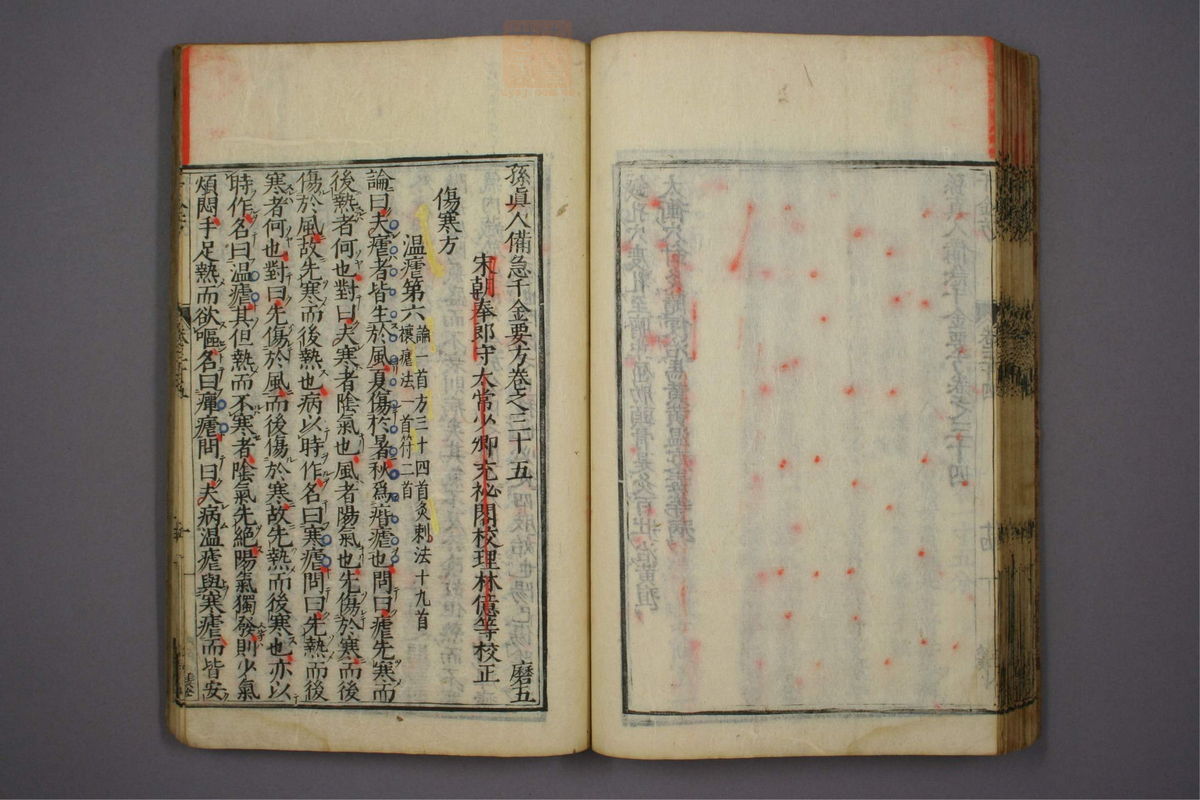 孫眞人備急千金要方卷之三十五 磨五
宋朝奉郎守太常少卿充祕閣校理林億等校正
傷寒方
温瘧第六 論一首方三十四首灸刺法十九首
禳瘧法一首符二首
論曰夫瘧者皆生於風夏傷於暑秋爲痎瘧也問曰瘧先寒而
後熱者何也對曰夫寒者陰氣也風者陽氣也先傷於寒而後
傷於風故先寒而後熱也病以時作名曰寒瘧問曰先熱而後
寒者何也對曰先傷於風而後傷於寒故先熱而後寒也亦以
時作名曰温瘧其但熱而不寒者陰氣先絶陽氣獨發則少氣
煩悶手足熱而欲嘔名曰癉瘧問曰夫病温瘧與寒瘧而皆安